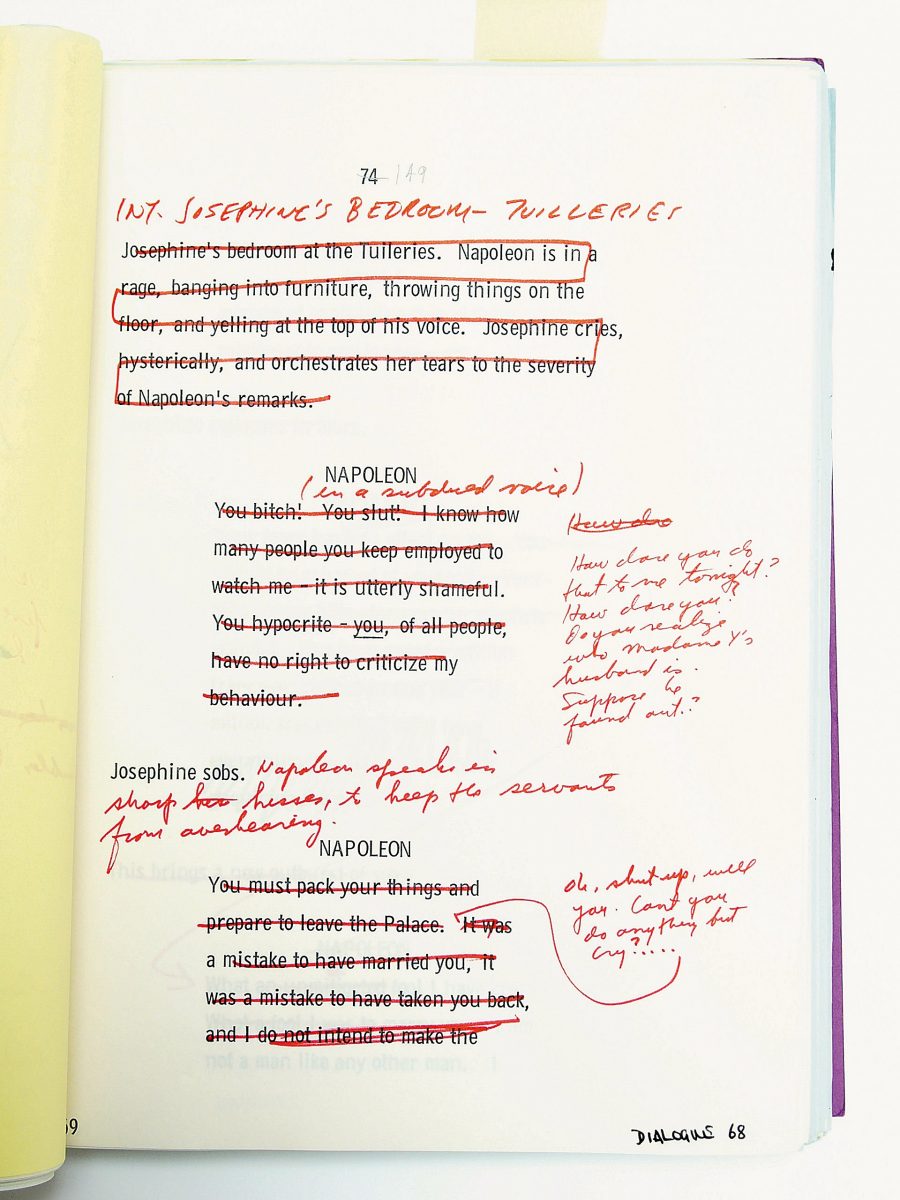 74 149
INT. JOSEPHINE'S BEDROOM - TUILLERIES
Josephine's bedroom at the Tuileries. Napoleon is in a
rage, banging into furniture, throwing things on the
floor, and yelling at the top of his voice. Josephine cries,
hysterically, and orchestrates her tears to the severity
of Napoleon's remarks.
NAPOLEON
(in a subdued voice)
You bitch! You slut! I know how
many people you keep employed to
watch me - it is utterly shameful.
You hypocrite - you, of all people,
have no right to criticize my
behaviour.
How do
How dare you do
that to me tonight?
How dare you?
Do you realize
who Madame Y's
husband is.
Suppose he
found out.?
Josephine sobs. Napoleon speaks in
sharp hisses, to keep the servants
from overhearing.
NAPOLEON
You must pack your things and
prepare to leave the Palace. It was
a mistake to have married you, it
was a mistake to have taken you back,
and I do not intend to make the
Oh, shut up, will
you. Can't you
do anything but
cry?.....
69
DIALOGUE 68